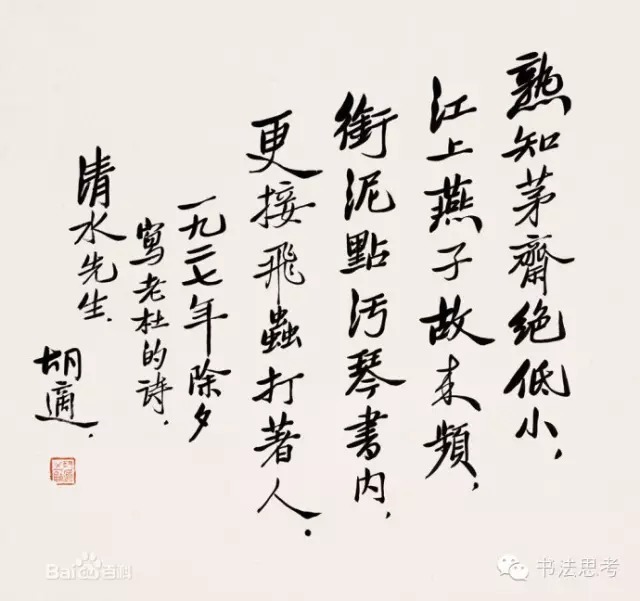 熟知茅齋绝低小，
江上燕子故来頻，
銜泥點汚琴書内，
更接飛蟲打著人．
一九二七年除夕
寫老杜的詩，
清水先生．
胡適．
Bai百科
书法思考